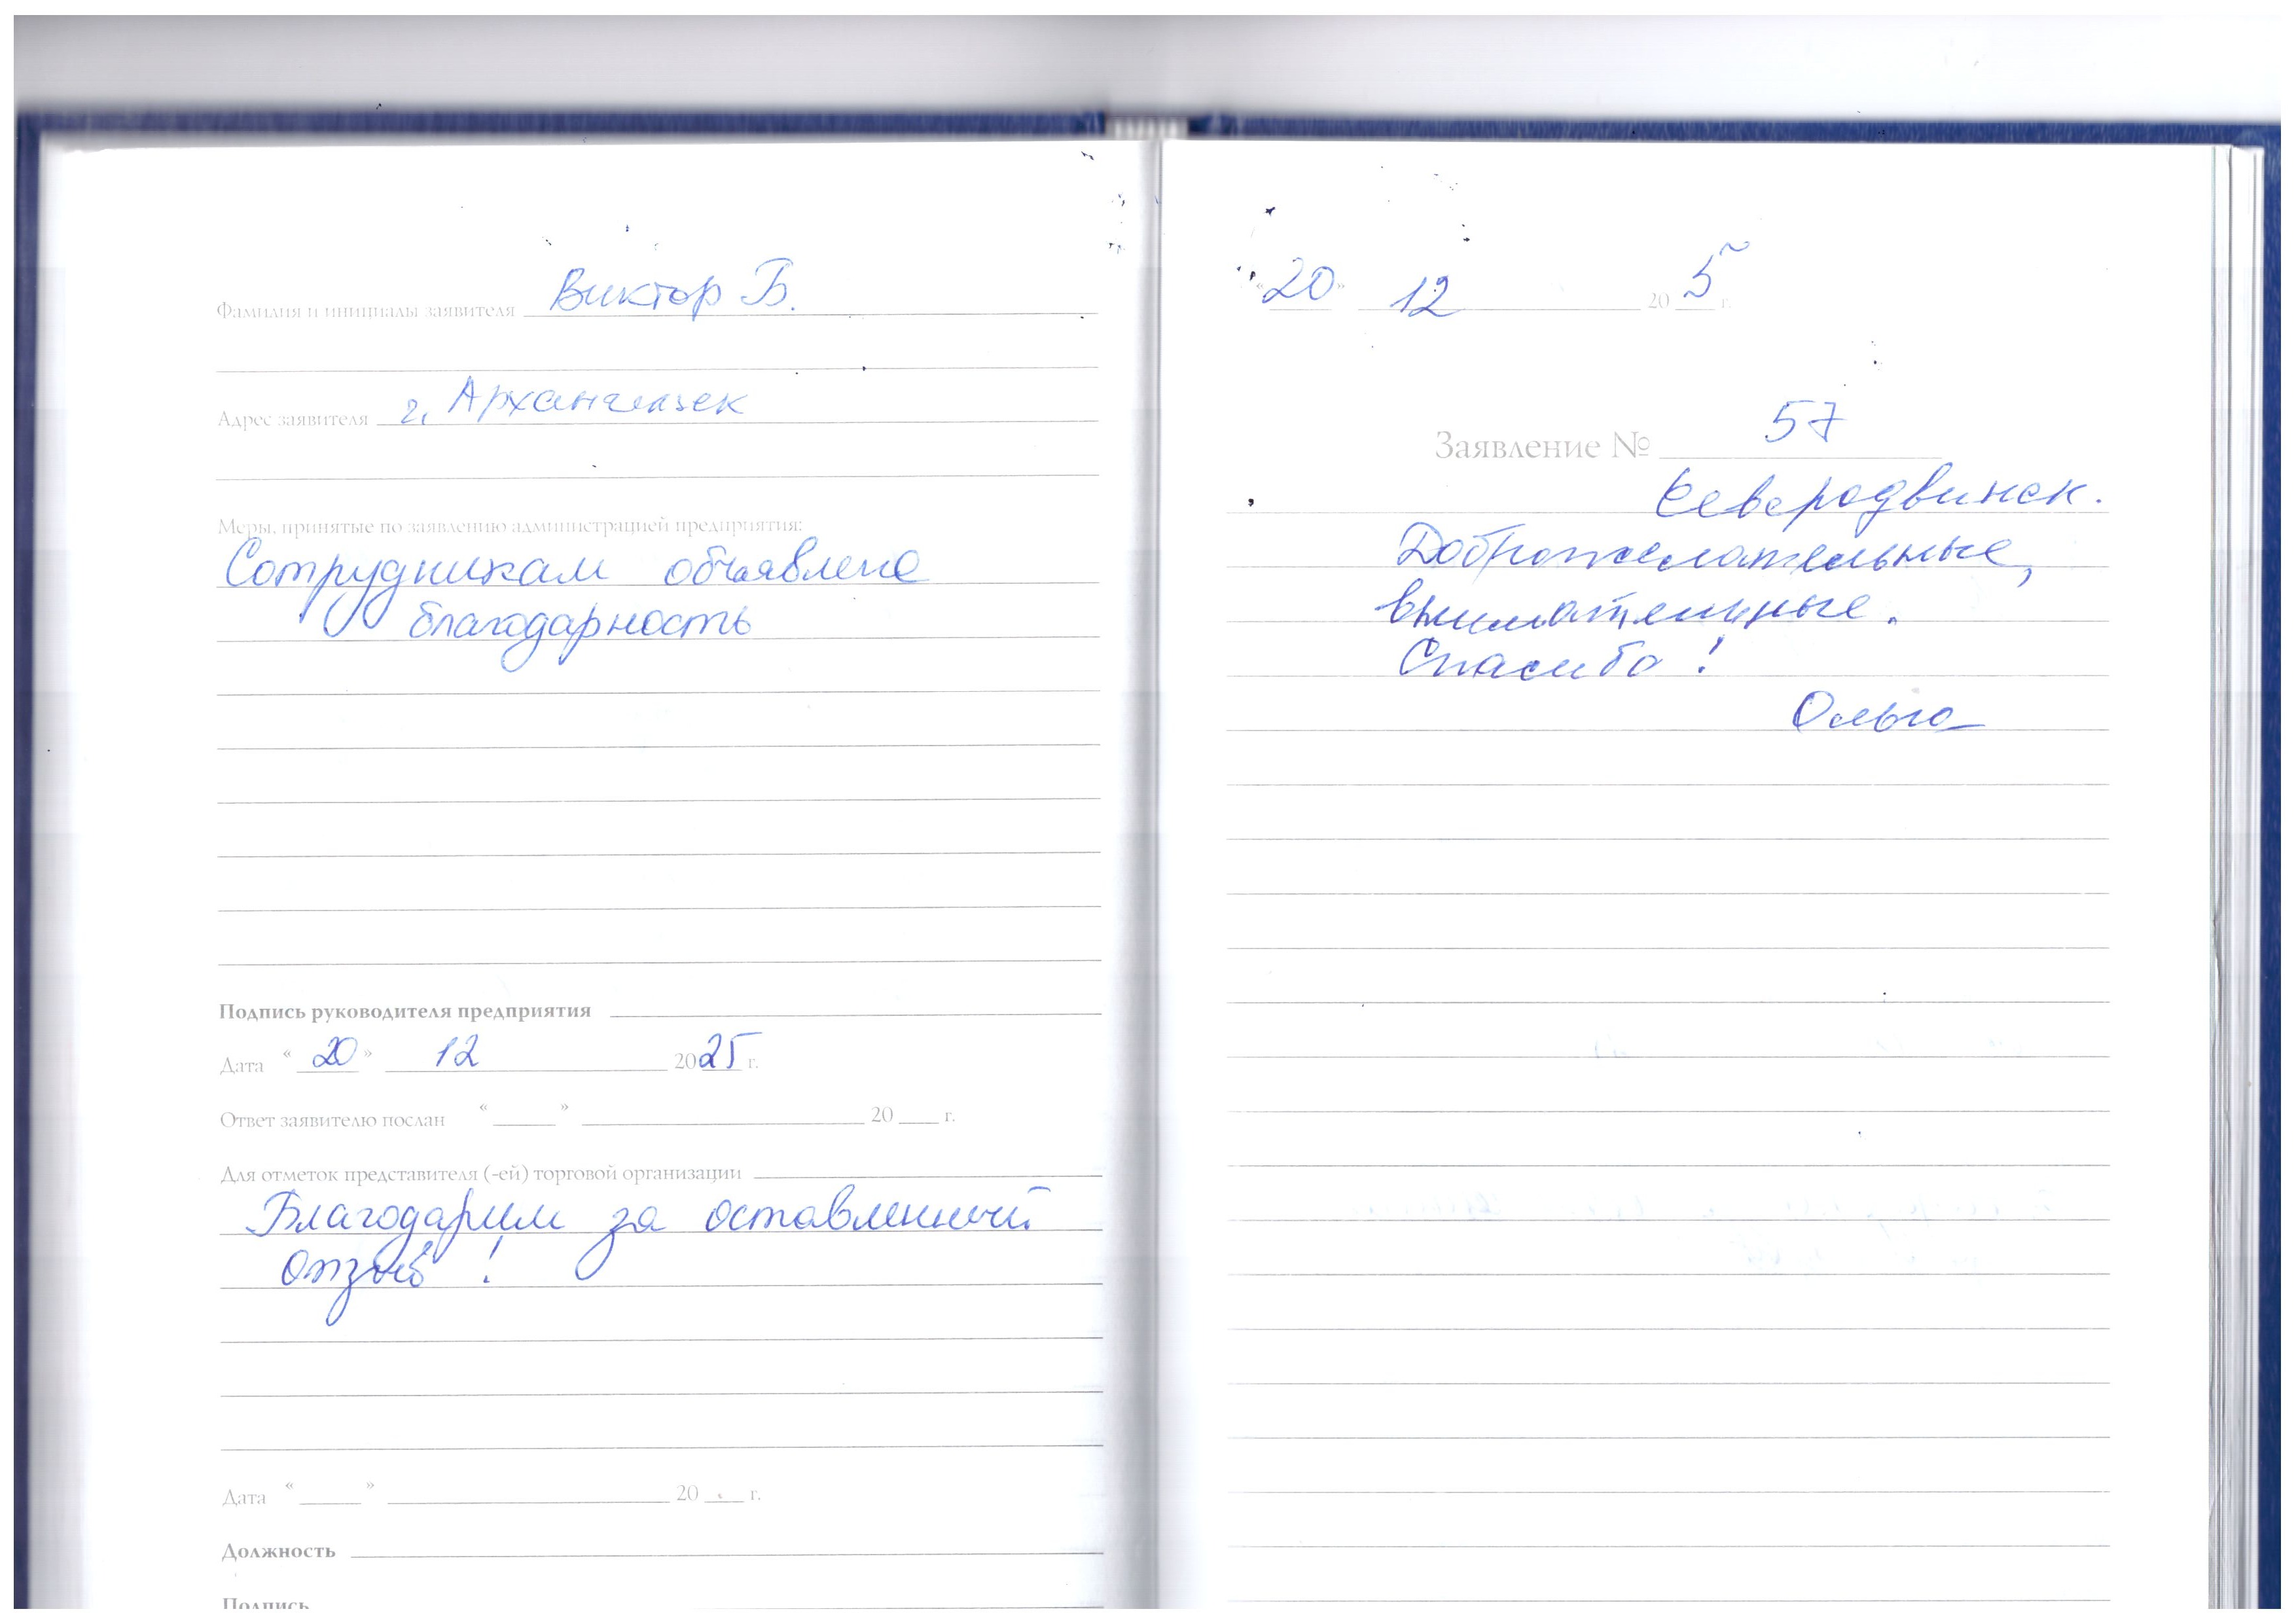 Фамилия и инициалы заявителя Виктор Б.
Адрес заявителя г. Архангельск
Меры, принятые по заявлению администрацией предприятия:
Сотрудникам объявлена
благодарность
Подпись руководителя предприятия
Дата «20» 12 2025 г.
Ответ заявителю послан « » 20 г.
Для отметок представителя (-ей) торговой организации
Благодарим за оставленный
отзыв!
Дата « » 20 г.
Должность
Подпись
«20» 12 20 5 г.
Заявление № 57
Северодвинск.
Доброжелательные,
внимательные.
Спасибо!
Ольга